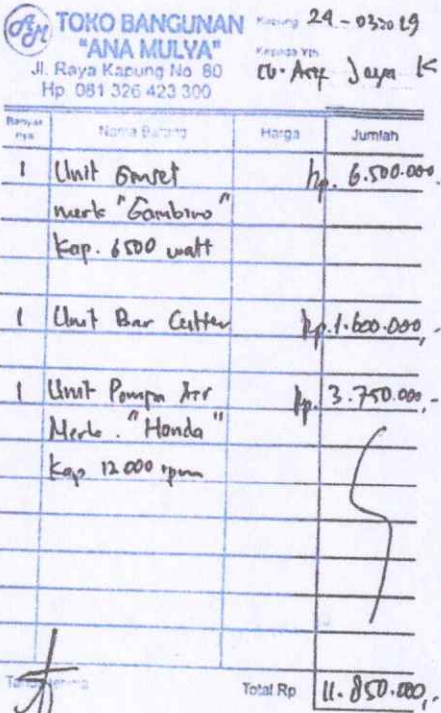 AM TOKO BANGUNAN
"ANA MULYA"
Jl. Raya Kapung No. 80
Hp. 081 326 423 300
Kapung, 24 - 03 2019
Kepada Yth.
Jaya K
Banyaknya Nama Barang Harga Jumlah
1 Unit Genset Rp. 6.500.000
merk "Gambino"
Kap. 6500 watt
1 Unit Bar Cutter Rp. 1.600.000,-
1 Unit Pompa Air Rp. 3.750.000,-
Merk. "Honda"
Kap 12000 rpm
Tanda terima
Total Rp 11.850.000,-